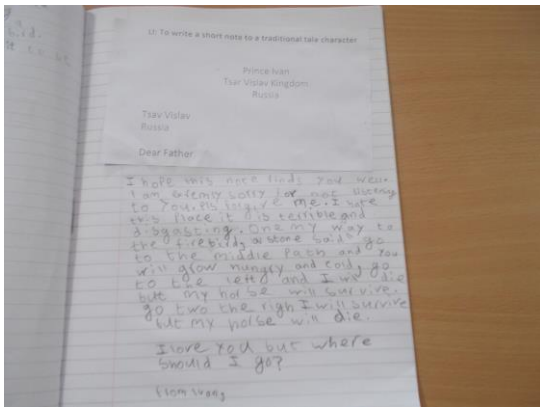 LI: To write a short note to a traditional tale character
Prince Ivan
Tsar Vislav Kingdom
Russia
Tsav Vislav
Russia
Dear Father
I hope this note finds you well.
I am sorry for not
to you. me. I hope
this place it is terrible and
disgasting. One my way to
the firebird, a stone said go
to the middle path and you
will grow hungry and cold, go
to the left and I will die
but my horse will survive.
go two the righ I will survive
but my horse will die.
I love you but where
should I go?
from Ivan